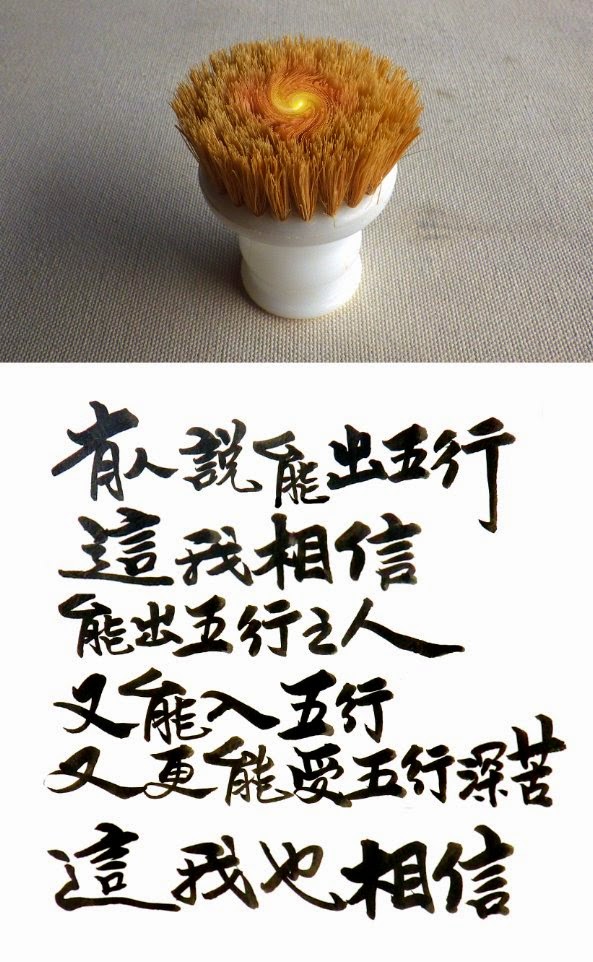 有人說能出五行
這我相信
能出五行之人
又能入五行
又更能受五行深苦
這我也相信